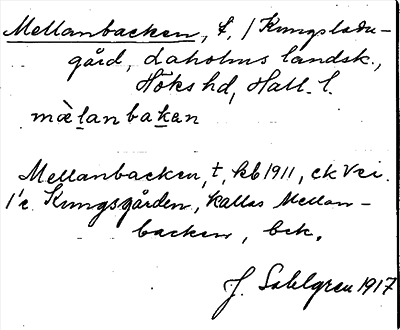 Mellanbacken, t, / Kungsladu-
gård, Laholms landsk.,
Höks hd, Hall. l.
mæ̀lanbakan
Mellanbacken, t, kb 1911, ck
Kungsgården, kallas Mellan-
backen, bek.
J. Sahlgren 1917